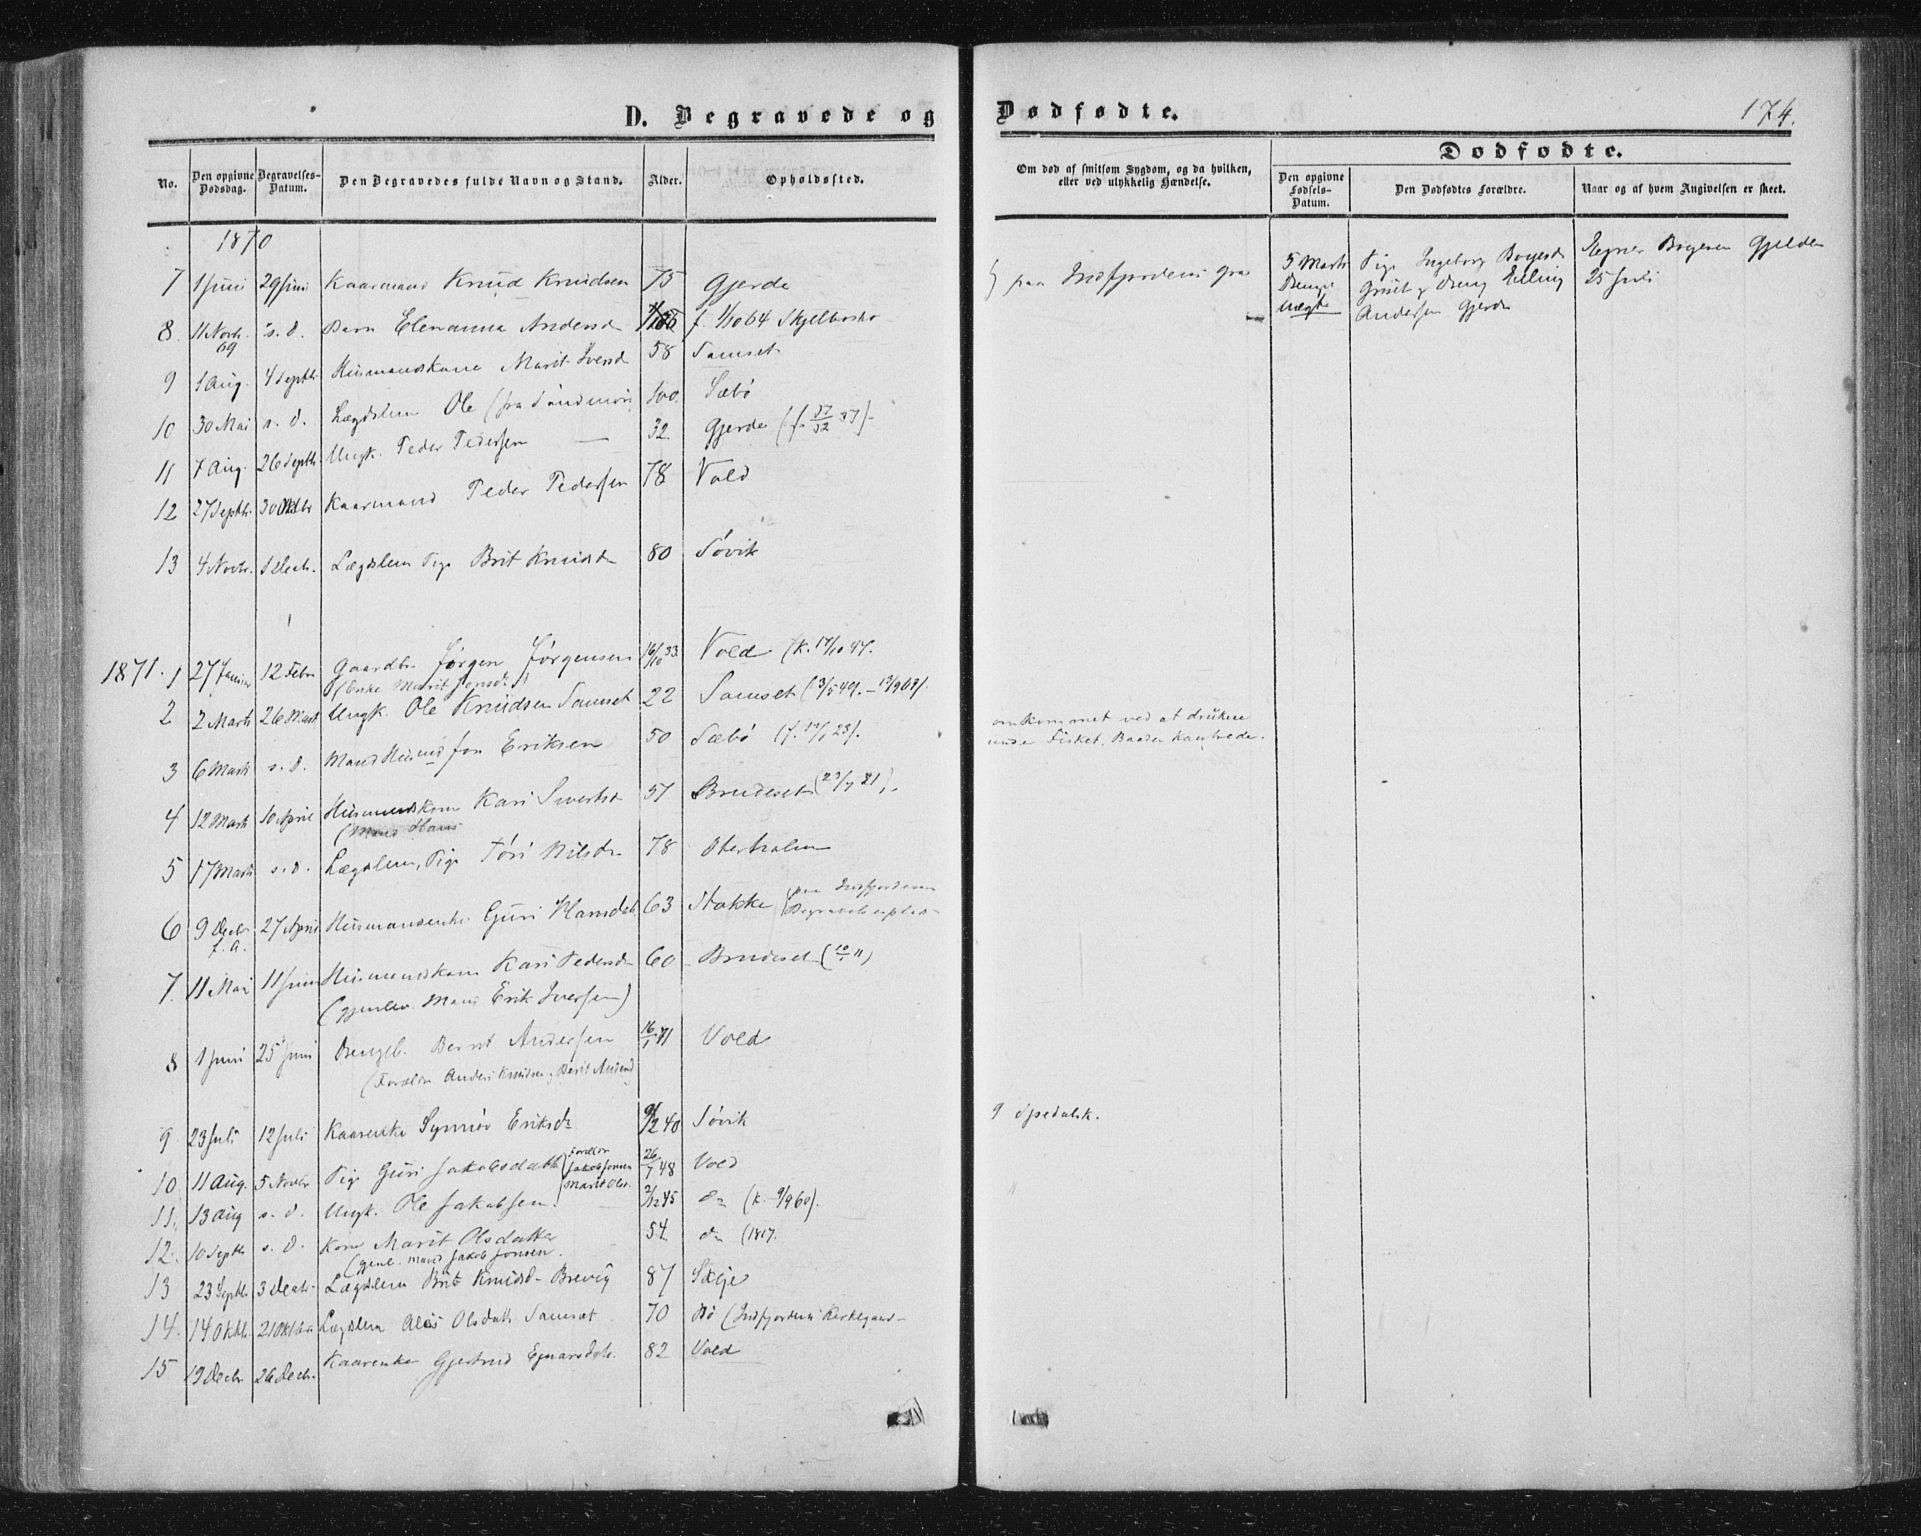 D. Begravede og Dødfødte.
174.
No.
Den opgivne Dødsdag.
Begravelses-Datum.
Den Begravedes fulde Navn og Stand.
Alder.
Opholdssted.
Om død af smitsom Sygdom, og da hvilken, eller ved ulykkelig Hændelse.
Dødfødte.
Den opgivne Fødsels-Datum.
Den Dødfødtes Forældre.
Naar og af hvem Angivelsen er skeet.
1870
7 1 Juni 29 Juni Kaarmand Knud Knudsen 75 Gjerde
5 Marts Pige Ingeborg Boyesd
25 Juli
Andersen Gjerde
8. 11 Novbr. 69 s. d. Barn Elenanna Andersd f. 1/10 64
9 1 Aug. 4 Septbr. Husmandskone Marit Iversd 58 Samset
10 30 Mai s. d. Lægdslem Ole (fra Søndmør 100. Sæbø
11 7 Aug. 26 Septbr. Ungk. Peder Pedersen 32. Gjerde
12 27 Septbr. 30 Oktbr Kaarmand Peder Pedersen 78 Vold
13 4 Novbr. 1 Decb. Lægdslem Pige Brit Knudsd 80 Søvik
1871. 1 27 Januar 12 Febr Gaardbr Jørgen Jørgensen 16/10 33. Vold (k. 17/10 47.
(Enke Marit Jonsd.)
2 2 Marts 26 Marts Ungk. Ole Knudsen Samset 22 Samset
omkommet ved at drukne
under Fisket, Baaden kantrede.
3 6 Marts s. d. Mand Husmd Jon Eriksen 50 Sæbø
4 12 Marts 10 April Husmandskone Kari Sivertsd 51 Brudeset
(Mand Hans
5 17 Marts s. d. Lægdslem, Pige Töri Nilsdr 78
6 9 Decbr f. A. 27 April Husmandsenke Guri Hansdatt 63 Stokke (paa Indfjordens Begravelsesplads
7. 11 Mai 11 Juni Husmandskone Kari Pedersd 60 Brudeset
(gjenlev. Mand Erik Iversen)
8 1 Juni 25 Juni Drengeb. Bernt Andersen 16/1 71 Vold
(Forældre Anders Knudsen og Berit
9 23 Juli 12 Juli Kaarenke Synnöv Eriksdr 9/2 40 Søvik
9 spedalsk.
10 11 Aug. 5 Novbr Pige Guri Jakobsdatt (Forældre Jakob Jonsen Marit Olsd. 26/7 48 Vold
11. 13 Aug s. d. Ungk. Ole Jakobsen 2/12 45 do (k. 9/9 60).
12. 10 Septbr s. d. Kone Marit Olsdatter 54. do (1817.
(gjenl. Mand Jakob Jonsen.
13 23 Septbr 3 Decbr. Lægdslem Brit Knudsd. Brevig 87 Sætje
14. 14 Oktbr. 21 Oktbr Lægdslem Olsdatt. Samset 70 Bø (Indfjordens Kirkegaard
15 19 Decbr 26 Decbr. Kaarenke Gjertrud Ejnarsdatt. 82 Vold